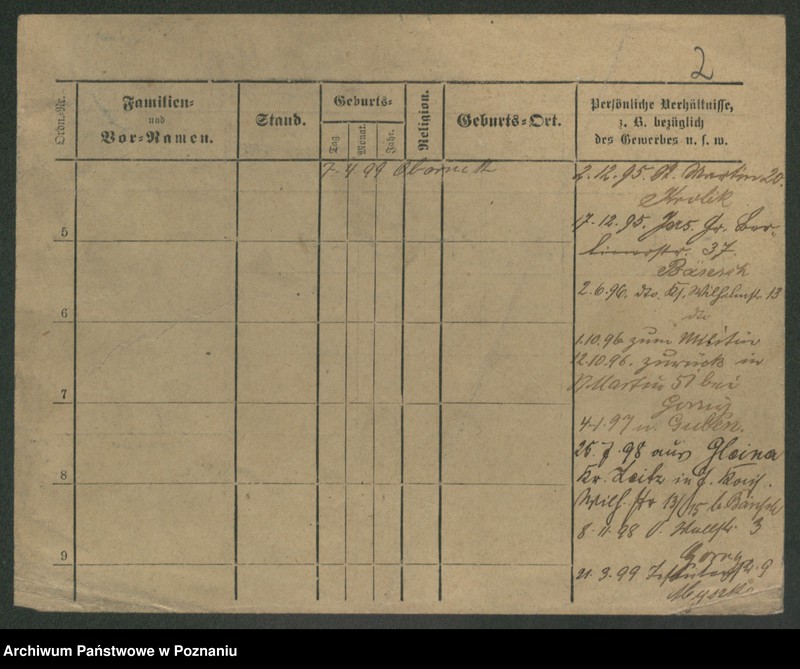 2
Ordn.-Nr.
Familien-
und
Vor-Namen.
Stand.
Geburts-
Tag
Monat.
Jahr.
Religion.
Geburts-Ort.
Persönliche Verhältnisse,
z. B. bezüglich
des Gewerbes u. s. w.
7. 4 99 Obornik
2. 12. 95. St. Martin 20.
Krolik
17. 12. 95. Gr. Ber-
linerstr. 37.
Bäsch
2. 6. 96. dto. Wilhelmstr. 13
dto
1.10.96 zum Militär
12.10.96. zurück in
St. Martin 57 bei
4. 1. 97 n. Guben.
25. 7. 98 aus Gleina
Kr. Zeitz in
Wilh. str 13/15 b.
8. 11. 98 Wallstr. 3
21. 3. 99 9
5
6
7
8
9
Archiwum Państwowe w Poznaniu